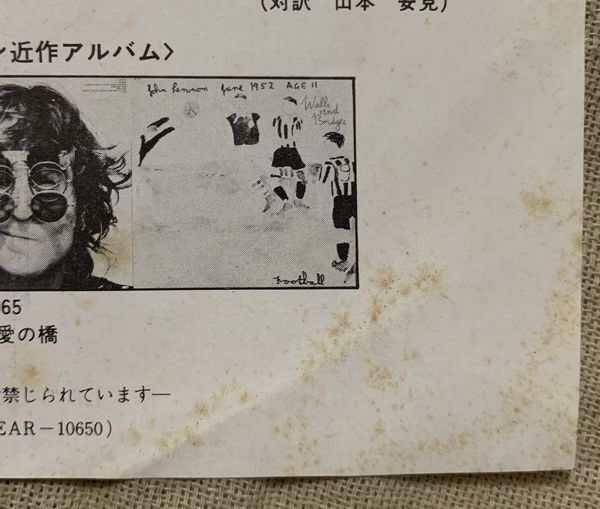 (対訳 山本 安見)
ン近作アルバム〉
John Lennon June 1952 AGE 11
Walls
and
Bridges
Football
065
愛の橋
禁じられています—
EAR－10650)